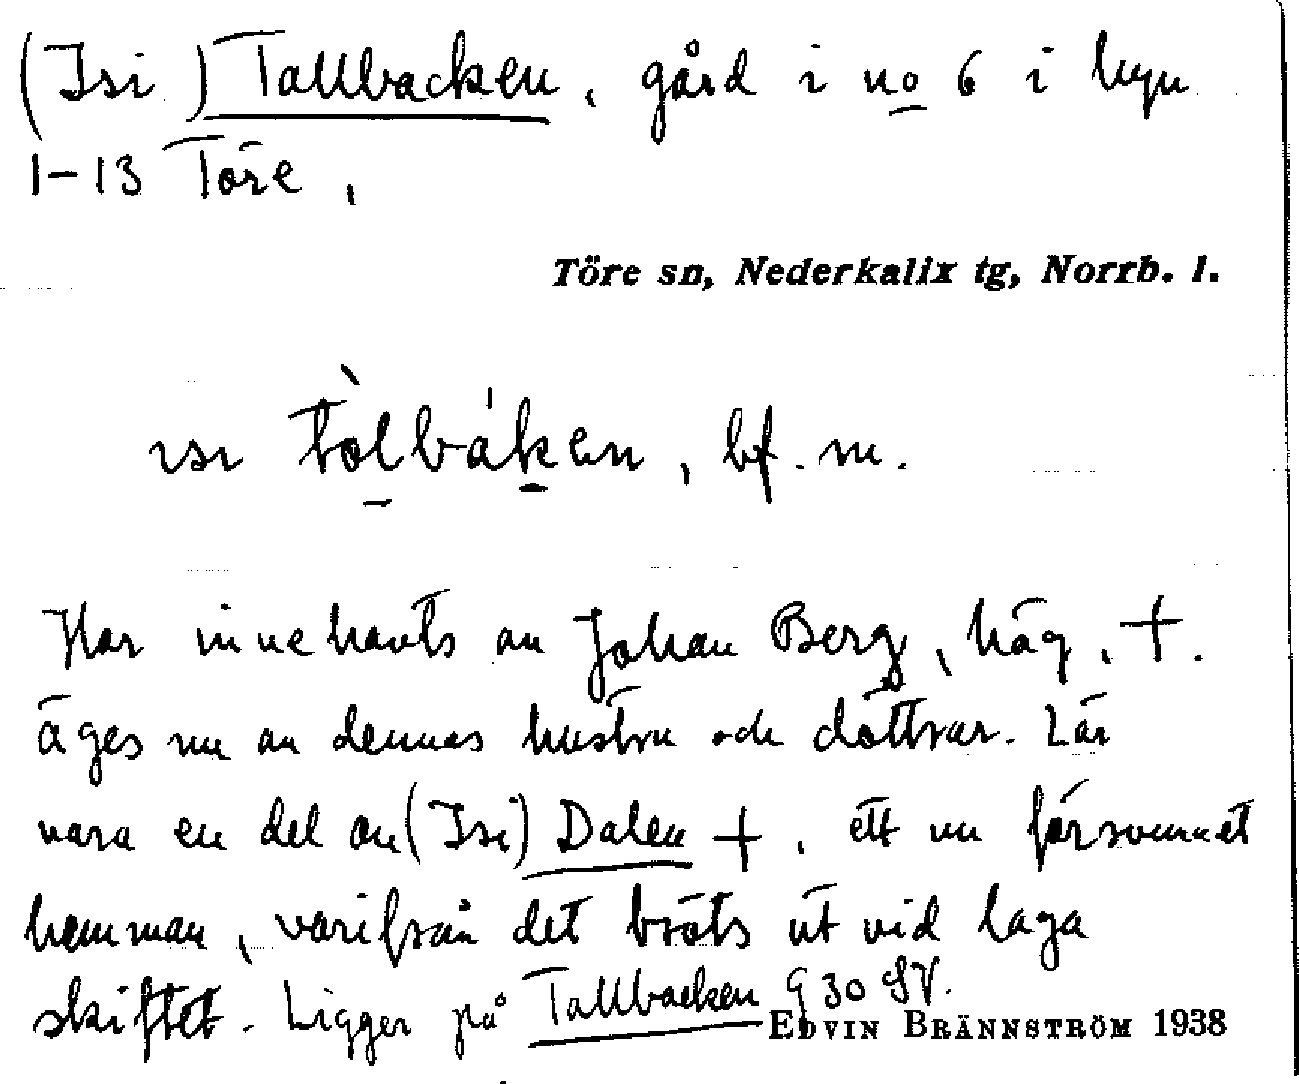 (Isi) Tallbacken, gård i no 6 i byn
1-13 Töre,
Töre sn, Nederkalix tg, Norrb. l.
isi tòlbáken, bf. m.
Har innehavts av Johan Berg, häg, +.
äges nu av dennes hustru och döttrar. Lär
vara en del av (Isi) Dalen +, ett nu försvunnet
hemman, varifrån det bröts ut vid laga
skiftet. Ligger på Tallbacken 9 30 SV.
EDVIN BRÄNNSTRÖM 1938